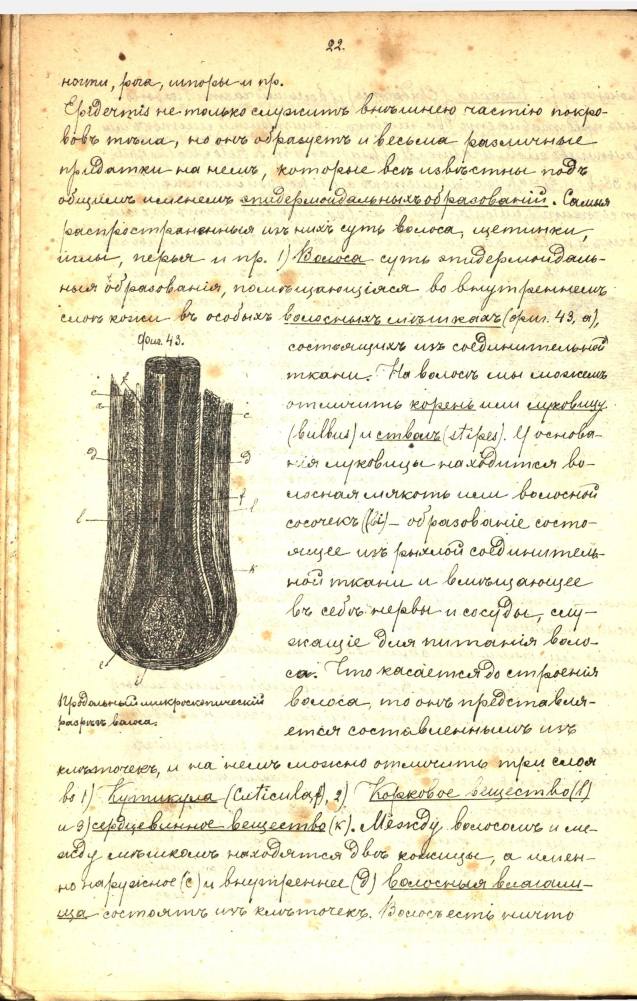 22.
ногти, рога, шпоры и пр.
Epidermis не только служитъ внѣшнею частію покро-
вовъ тѣла, но онъ образуетъ и весьма различные
придатки на немъ, которые всѣ извѣстны подъ
общимъ именемъ эпидермоидальныхъ образованій. Самыя
распространенныя изъ нихъ суть волоса, щетинки,
иглы, перья и пр. 1) Волоса суть эпидермоидаль-
ныя образованія, помѣщающіяся во внутреннемъ
слоѣ кожи въ особыхъ волосныхъ мѣшкахъ (фиг. 43, а),
Фиг. 43.
состоящихъ изъ соединительной
ткани. На волосѣ мы можемъ
отличить корень или луковицу
(bulbus) и стволъ (stipes). У основа-
нія луковицы находится во-
лосная мякоть или волосной
сосочекъ – образованіе состо-
ящее изъ рыхлой соединитель-
ной ткани и вмѣщающее
въ себѣ нервы и сосуды, слу-
жащіе для питанія воло-
са. Что касается до строенія
волоса, то онъ представля-
ется составленнымъ изъ
c
a
d
l
e
i
f
c
d
f
l
к
Продальный микроскопическій
разрѣзъ волоса.
клѣточекъ, и на немъ можно отличить три слоя
во 1) Кутикула (Cuticula, f), 2) Корковое вещество (l)
и 3) сердцевинное вещество (к). Между волосомъ и ме-
жду мѣшкомъ находятся двѣ кожицы, а имен-
но наружное (c) и внутреннее (d) волосныя влагали-
ща состоятъ изъ клѣточекъ. Волосъ есть ничто